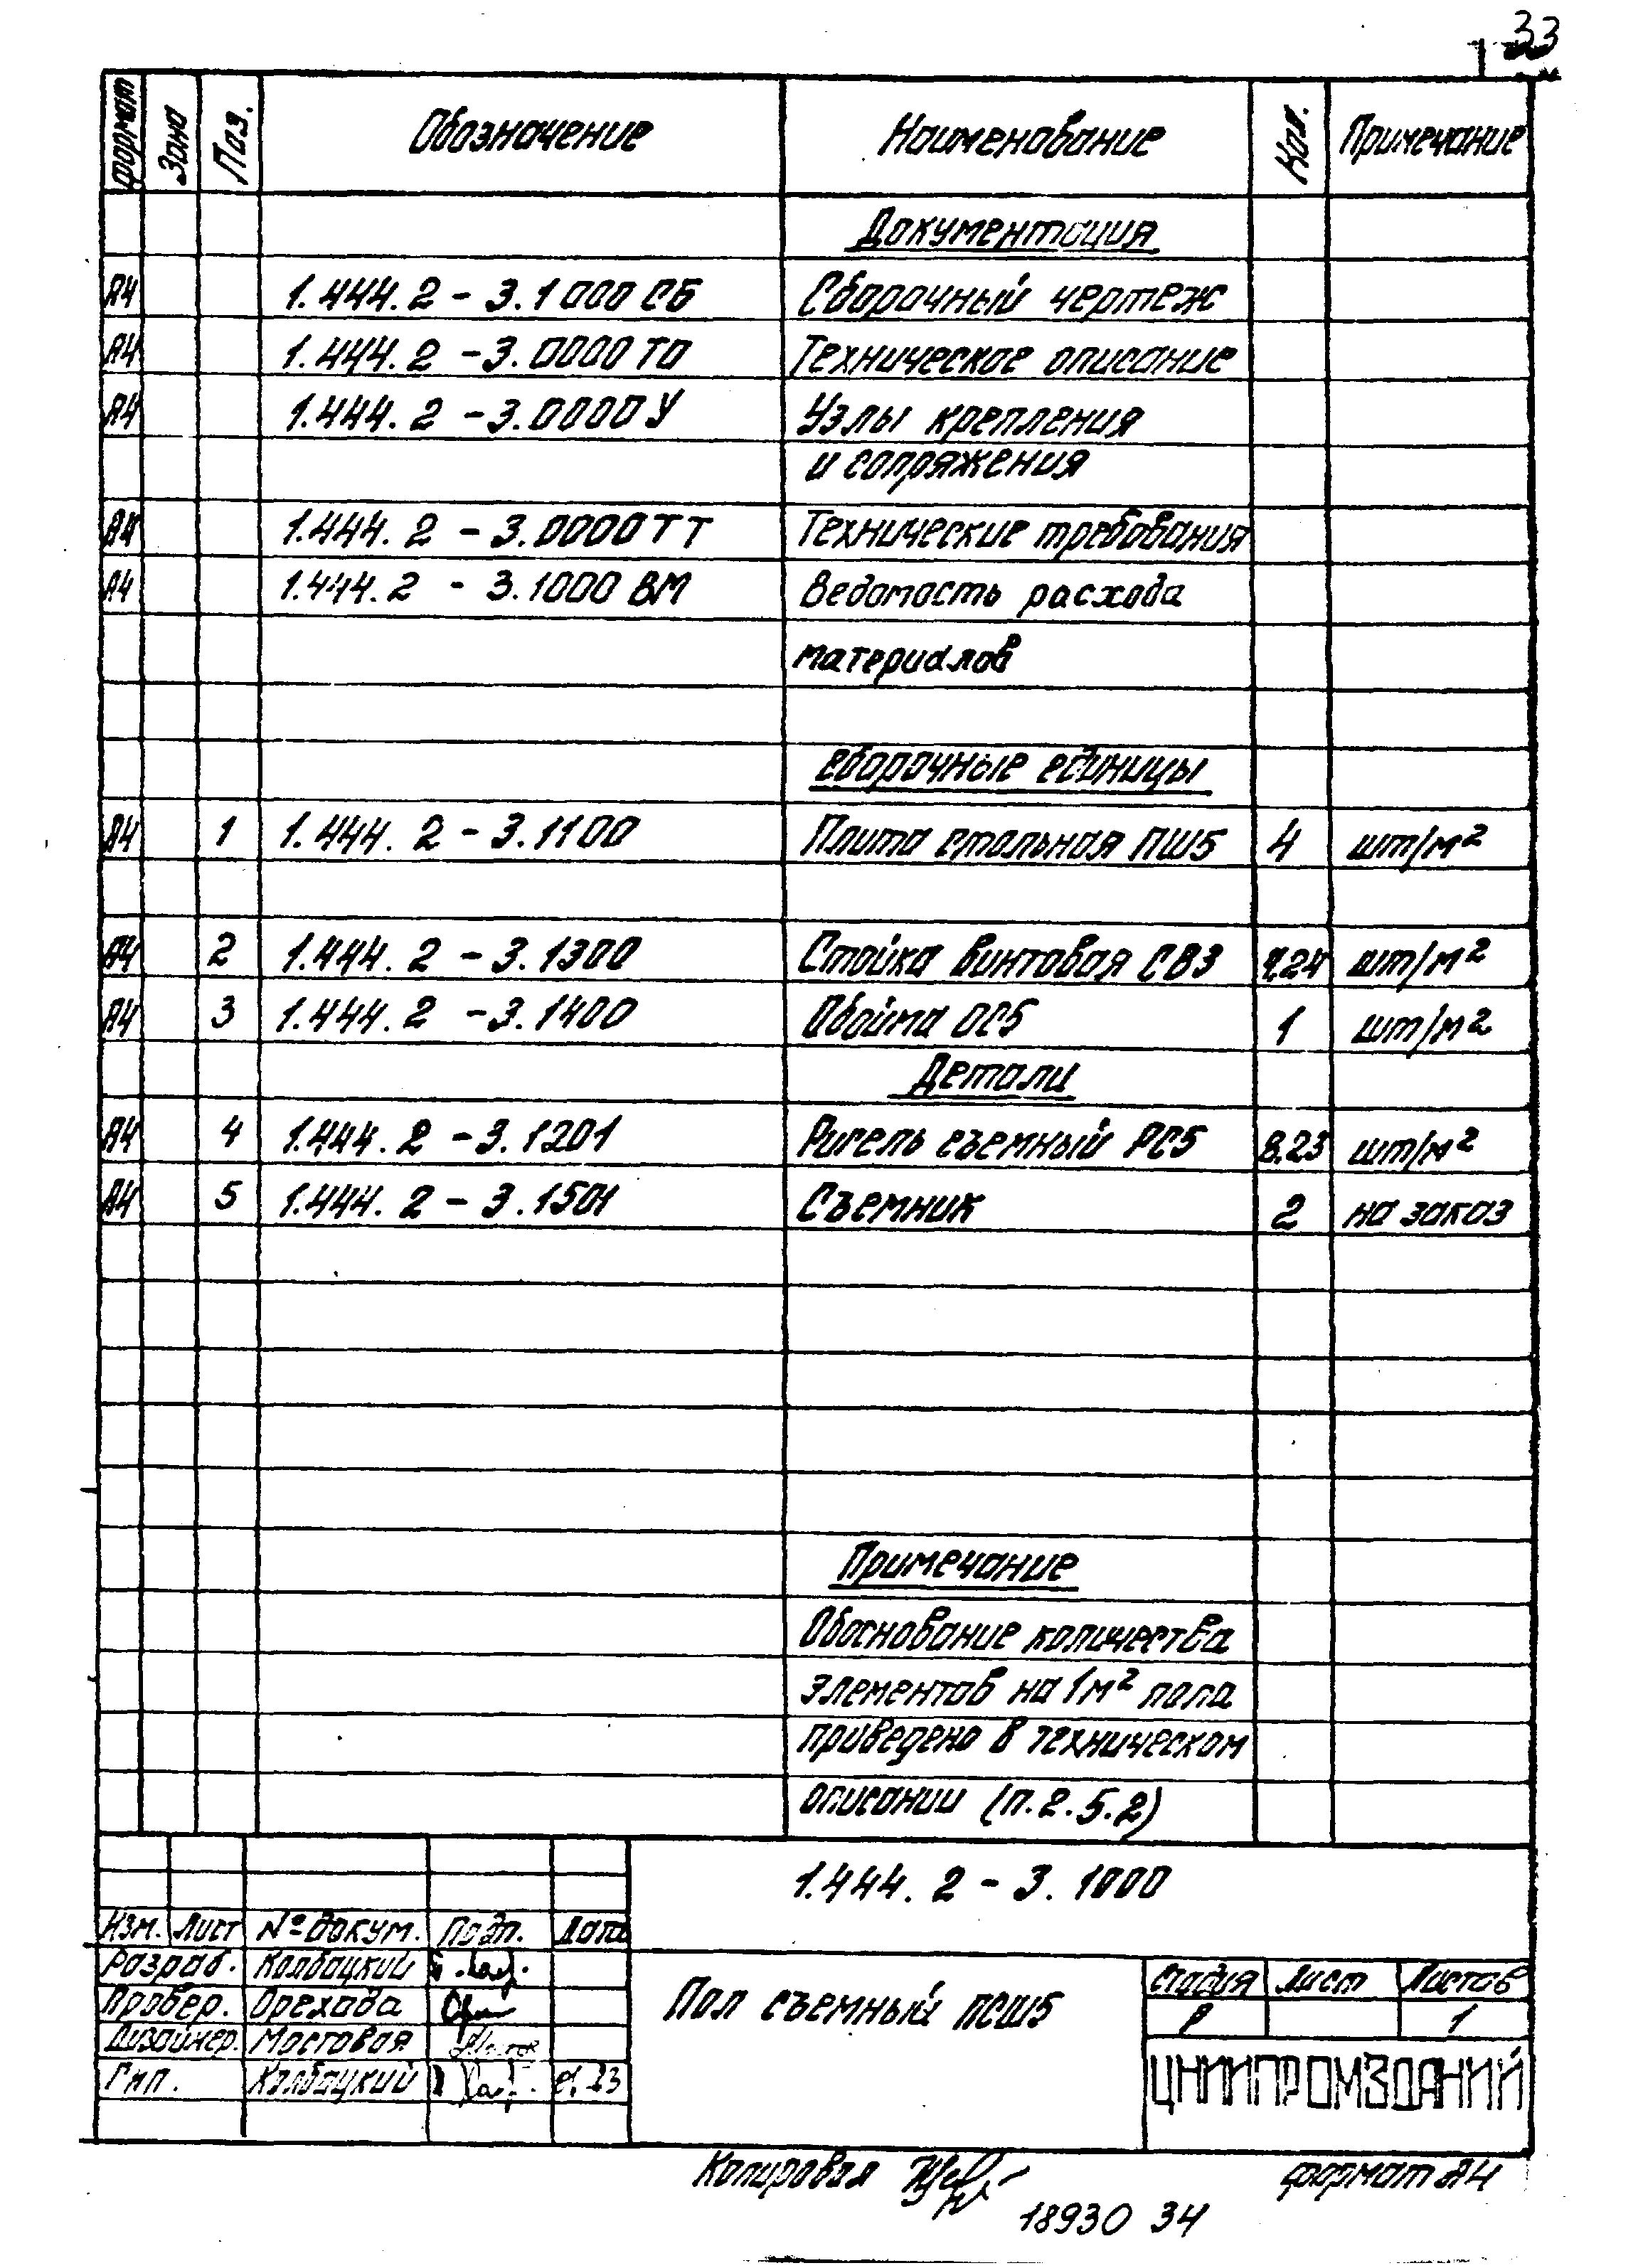 33
Формат Зона Поз. Обозначение Наименование Кол. Примечание
Документация
А4 1.444.2-3.1000 СБ Сборочный чертеж
А4 1.444.2-3.0000 ТО Техническое описание
А4 1.444.2-3.0000 У Узлы крепления
и сопряжения
А4 1.444.2-3.0000 ТТ Технические требования
А4 1.444.2-3.1000 ВМ Ведомость расхода
материалов
Сборочные единицы
А4 1 1.444.2-3.1100 Плита стальная ПШ5 4 шт/м²
А4 2 1.444.2-3.1300 Стойка винтовая СВ3 шт/м²
А4 3 1.444.2-3.1400 Обойма ОС5 1 шт/м²
Детали
А4 4 1.444.2-3.1201 Ригель съемный РС5 8.23 шт/м²
А4 5 1.444.2-3.1501 Съемник 2 на заказ
Примечание
Обоснование количества
элементов на 1м² пола
приведено в техническом
описании (п.2.5.2)
1.444.2-3.1000
Изм. Лист № докум. Подп. Дата
Разраб. Колбацкий
Провер. Орехова
Дизайнер. Мостовая
Гип. Колбацкий
Пол съемный ПСШ5
Стадия Лист Листов
Р 1
ЦНИИПРОМЗДАНИЙ
Копировал формат А4
18930 34